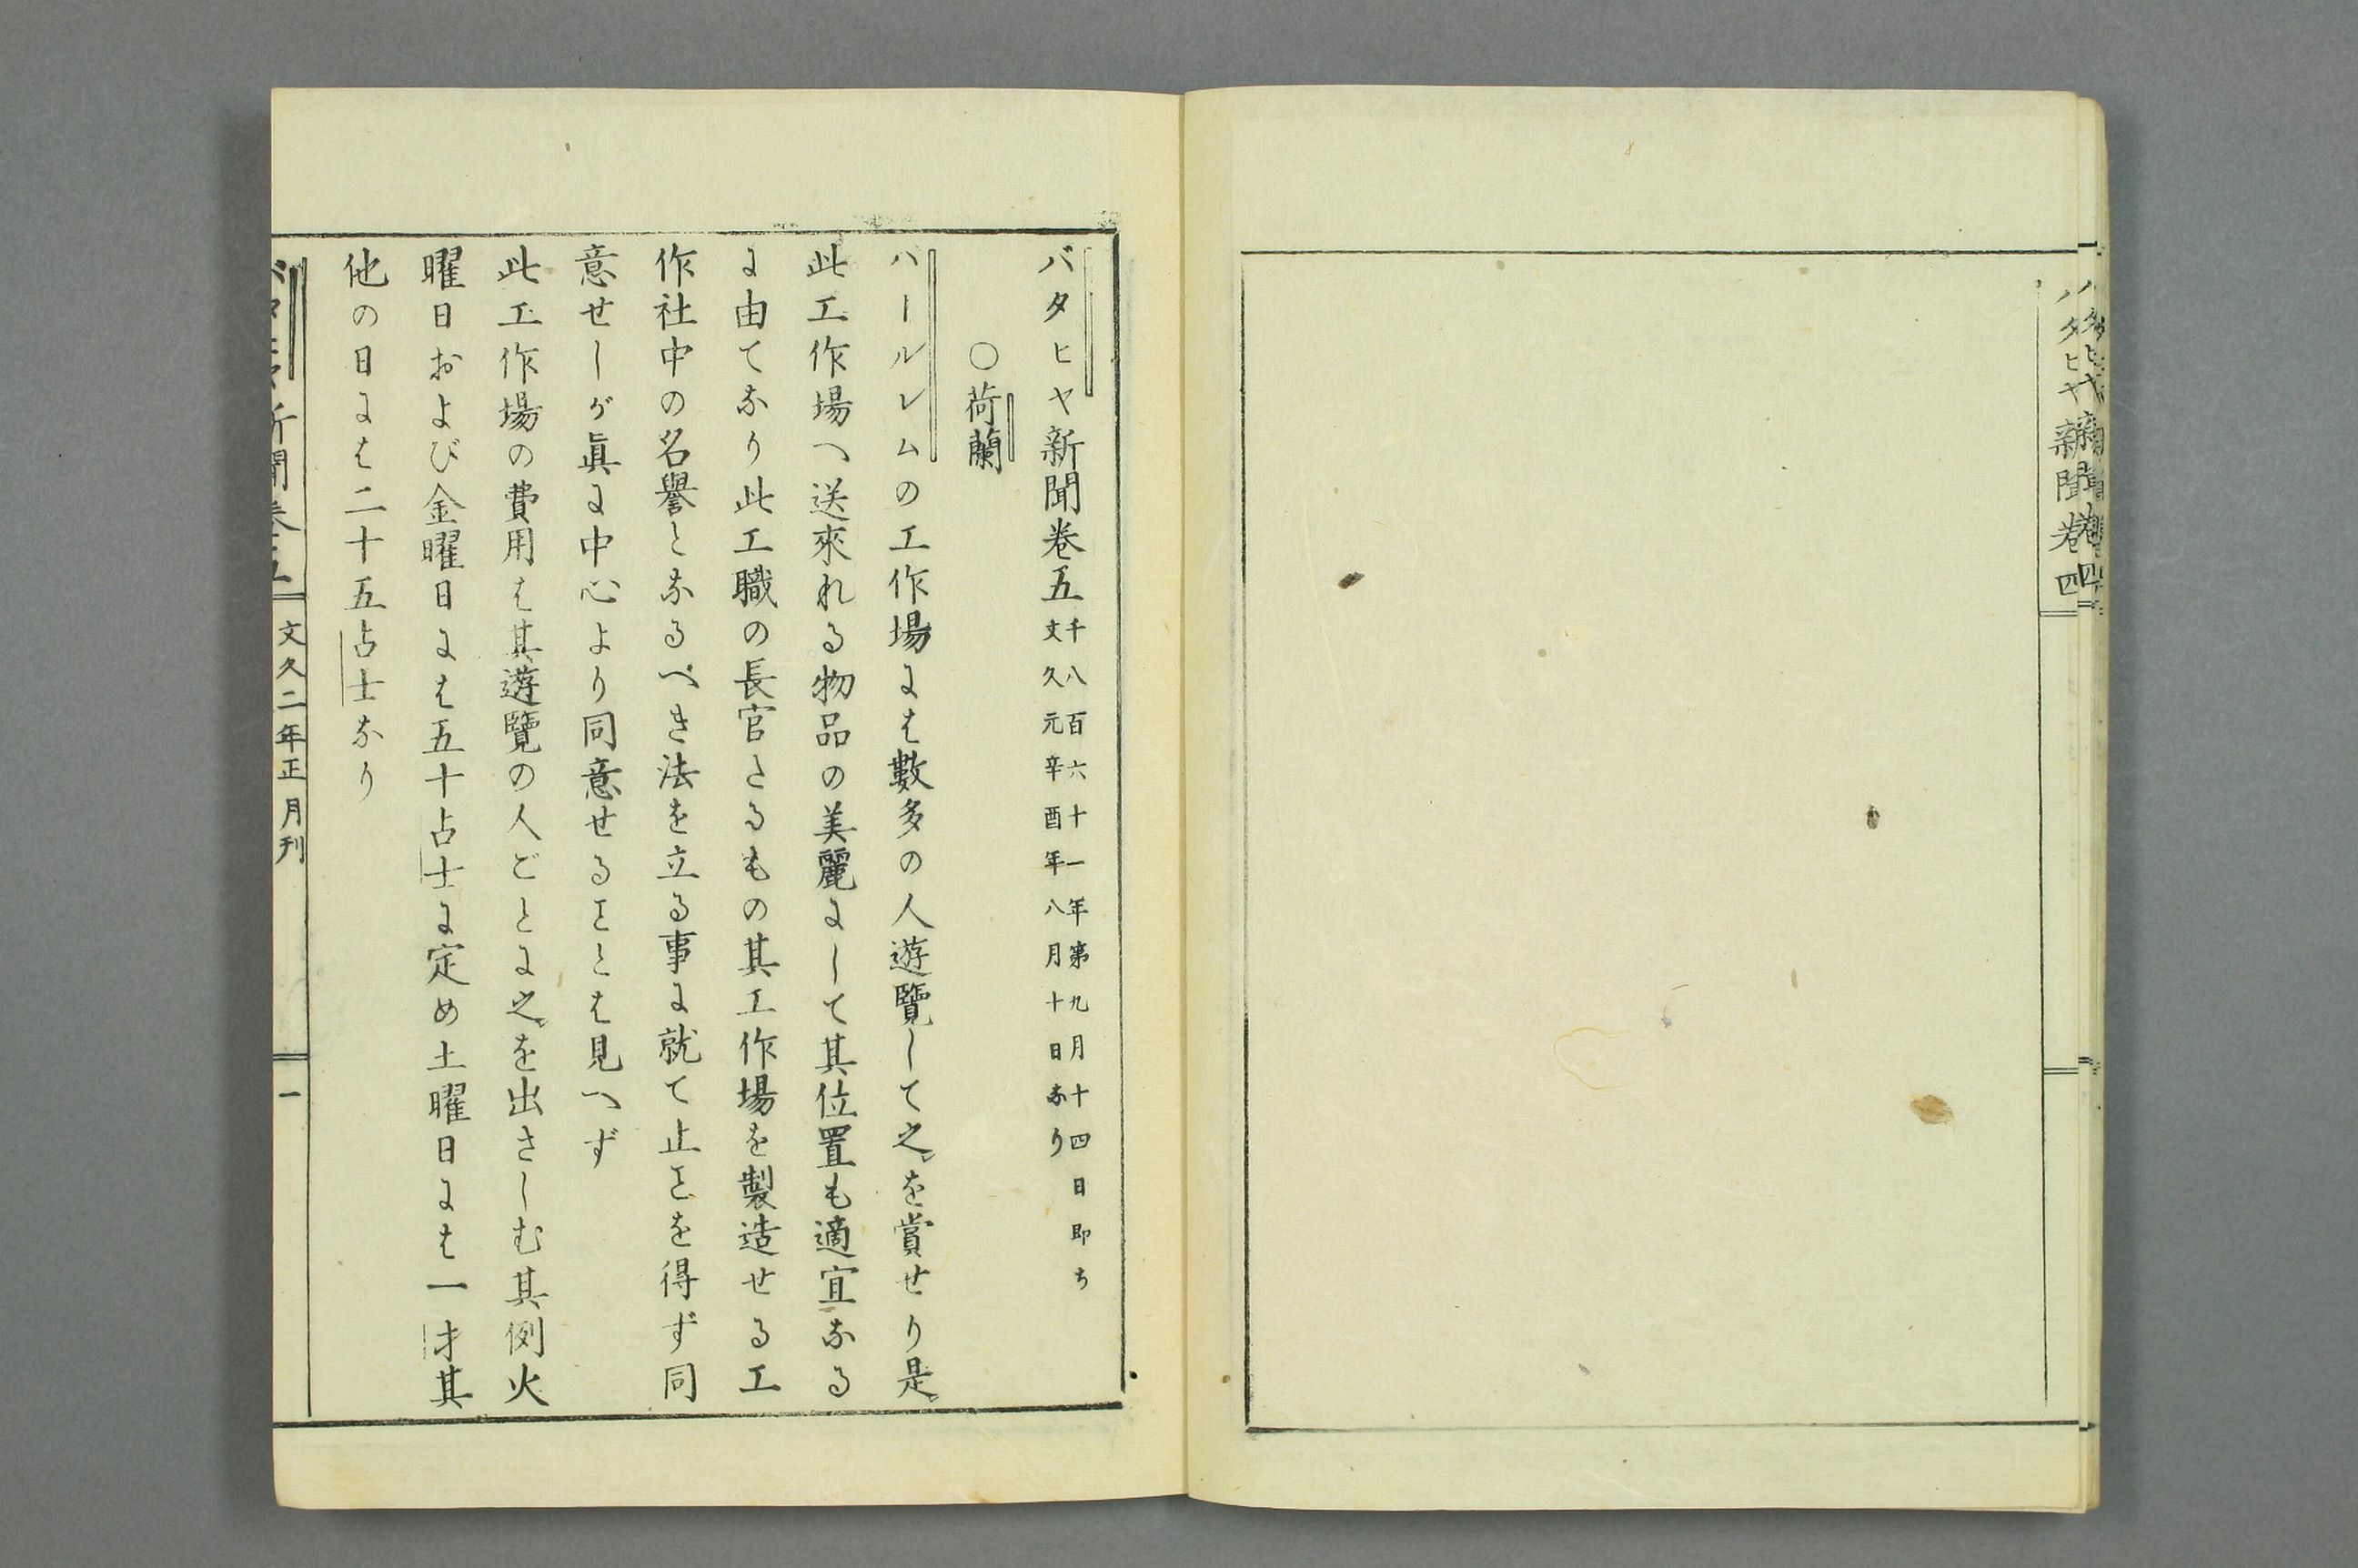 バタヒヤ新聞卷四
バタヒヤ新聞卷五 千八百六十一年第九月十四日即ち
文久元辛酉年八月十日なり
○荷蘭
ハールレムの工作場には數多の人遊覽して之を賞せり是
此工作場へ送來れる物品の美麗にして其位置も適宜なる
に由てなり此工職の長官たるもの其工作場を製造せる工
作社中の名譽となるべき法を立る事に就て止ヿを得ず同
意せしが眞に中心より同意せるヿとは見へず
此工作場の費用は其遊覽の人ごとに之を出さしむ其例火
曜日および金曜日には五十占士に定め土曜日には一才其
他の日には二十五占士なり
バタヒヤ新聞卷五 文久二年正月刊 一